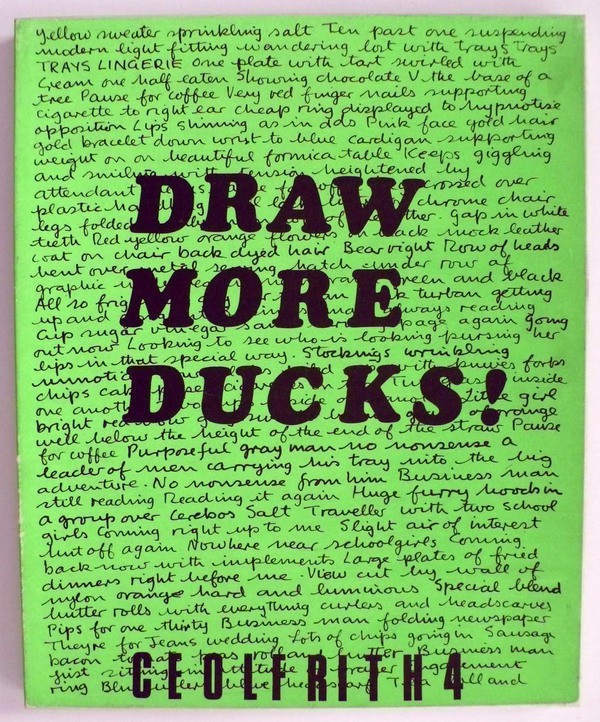 yellow sweater sprinkling salt Ten past one suspending
modern light fitting wandering lost with trays Trays
TRAYS LINGERIE One plate with tart swirled with
Cream one half eaten Showing chocolate V the base of a
tree Pause for coffee Very red finger nails supporting
cigarette to right ear cheap ring displayed to hypnotise
opposition Lips shinning as in ads Pink face gold hair
gold bracelet down wrist to blue cardigan supporting
weight on on beautiful formica table Keeps giggling
and smiling with tension heightened by
attendant crossed over
plastic chrome chair
legs folded of Gap in white
teeth Red yellow orange flowers in black mock leather
coat on chair back dyed hair Bear right Row of heads
bent over metal serving hatch under row of
graphic green and black
All so turban getting
up and always reading
Cup sugar vinegar page again going
out now Looking to see who is looking pursing her
lips in that special way. Stockings wrinkling
with knives forks
chips inside
one another little girl
bright red orange
well below the height of the end of the straw Pause
for coffee Purposeful gray man no nonsense a
leader of men carrying his tray into the big
adventure. No nonsense from him Business man
still reading Reading it again Huge furry hoods in
a group over Cerebos Salt Traveller with two school
girls coming right up to me Slight air of interest
but off again Nowhere near schoolgirls coming
back now with implements Large plates of fried
dinners right before me. View cut by wall of
nylon orange hard and luminous Special blend
butter rolls with everything curlers and headscarves
Pips for one thirty Business man folding newspaper
Theyre for Jeans wedding Lots of chips going in Sausage
bacon tomato peas roll and butter Business man
just sitting
ring Blue
DRAW
MORE
DUCKS!
CEOLFRITH 4